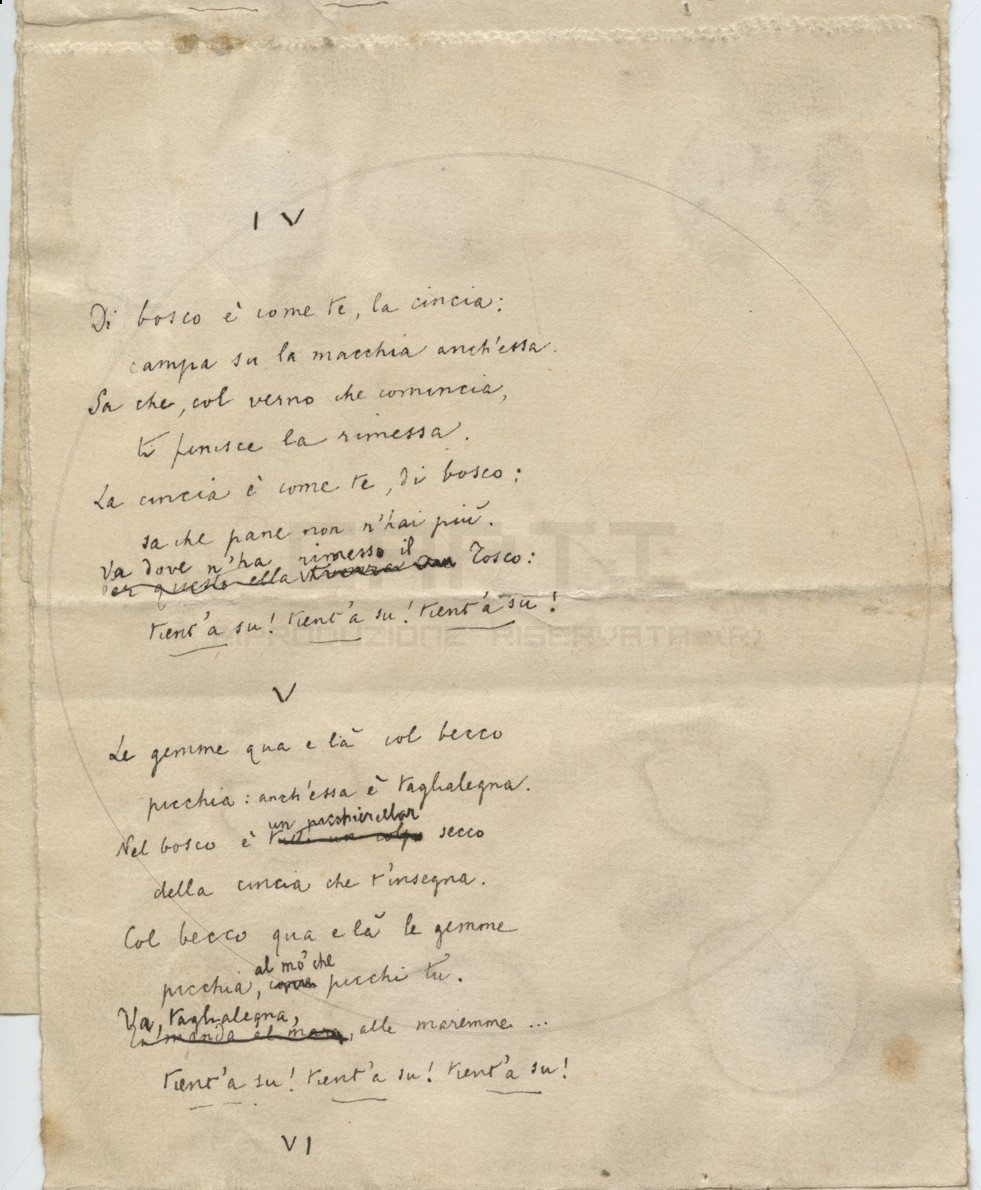 IV
Di bosco è come te, la cincia:
campa su la macchia anch'essa.
Sa che, col verno che comincia,
ti finisce la rimessa.
La cincia è come te, di bosco:
sa che pane non n'hai più.
Va dove n'ha rimesso il
Per questo ella Tosco:
tient'a su! tient'a su! tient'a su!
V
Le gemme qua e là col becco
picchia: anch'essa è taglialegna.
un picchierellar
Nel bosco è tutto un colpo secco
della cincia che t'insegna.
Col becco qua e là le gemme
al mo' che
picchia, come picchi tu.
Va, taglialegna,
manda al mare, alle maremme...
tient'a su! tient'a su! tient'a su!
VI
RIPRODUZIONE RISERVATA (R)